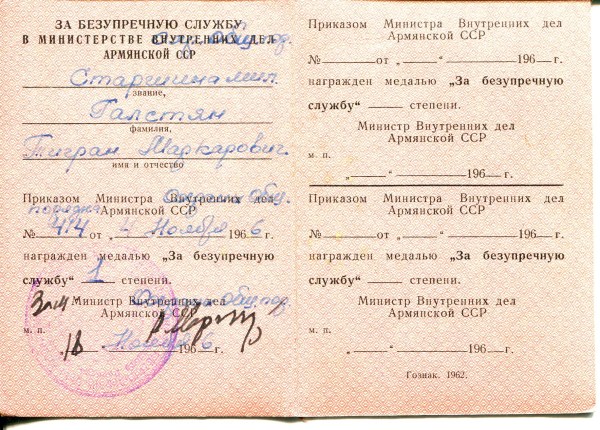 ЗА БЕЗУПРЕЧНУЮ СЛУЖБУ
В МИНИСТЕРСТВЕ ВНУТРЕННИХ ДЕЛ
Охр. Общ. пор.
АРМЯНСКОЙ ССР
Старшина мил.
звание,
Галстян
фамилия,
Тигран Маркарович
имя и отчество
Приказом Министра Внутренних дел
Охраны Общ.
порядка Армянской ССР
№ 414 от „ - Ноября 1966 г.
награжден медалью „За безупречную
службу“ 1 степени.
Министр Внутренних дел
Охраны Общ. пор.
Армянской ССР
Зам
м. п.
18 Ноября 1966 г.
Приказом Министра Внутренних дел
Армянской ССР
№ от „ “ 196 г.
награжден медалью „За безупречную
службу“ степени.
Министр Внутренних дел
Армянской ССР
м. п.
„ “ 196 г.
Приказом Министра Внутренних дел
Армянской ССР
№ от „ “ 196 г.
награжден медалью „За безупречную
службу“ степени.
Министр Внутренних дел
Армянской ССР
м. п.
„ “ 196 г.
Гознак. 1962.